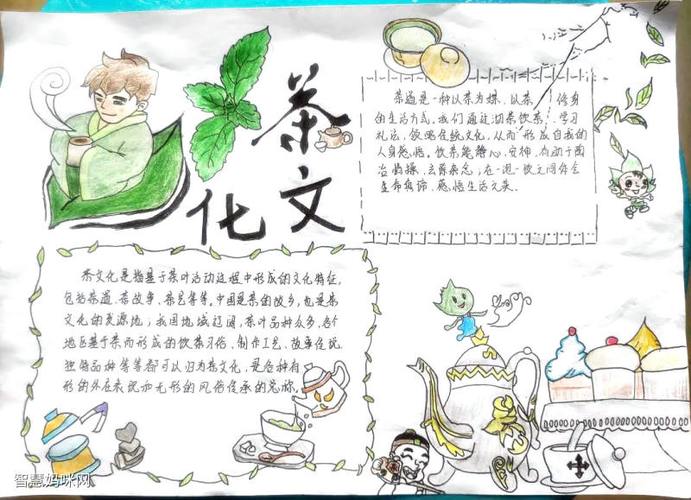 茶文化
茶道是一种以茶为媒,以茶修身
的生活方式。我们通过沏茶饮茶,学习
礼法,领略传统文化,从而形成自我的
人身感悟。饮茶能静心、安神,有助于陶
冶情操、去除杂念;在一泡一饮之间体会
感悟生活之美。
茶文化是指基于茶叶活动过程中形成的文化特征,
包括茶道、茶故事、茶艺等等。中国是茶的故乡,也是茶
文化的发源地;我国地域辽阔,茶叶品种众多,各个
地区基于茶而形成的饮茶习俗、制作工艺、故事传说、
独特品种等等都可以归为茶文化,是各种有
形的外在表现和无形的风俗传承的总称。
智慧妈咪网